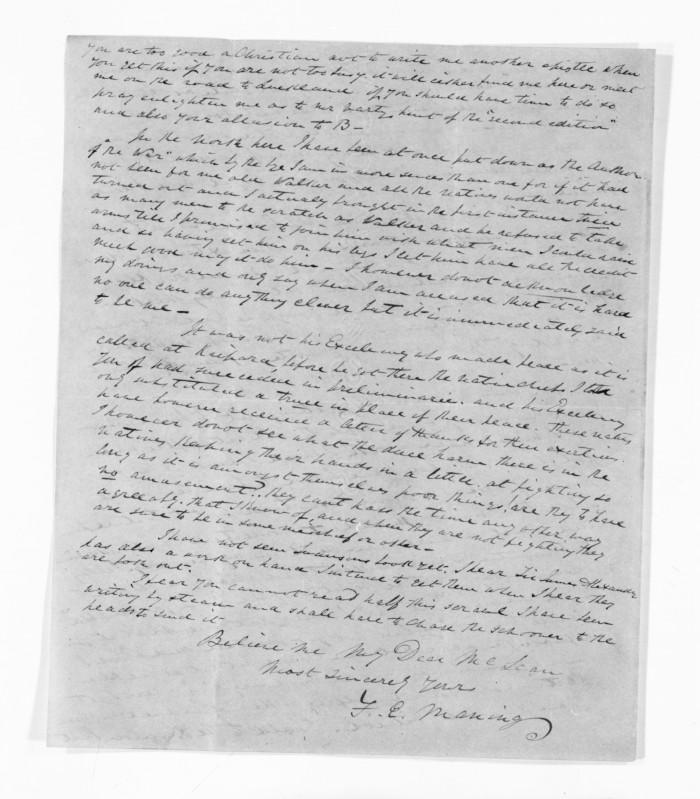 You are too good a Christian not to write me another epistle when
you get this if you are not too busy it will either find me here or meet
me on the road to Auckland if you should have time to do so
pray enlighten me as to mr hint of the "second edition"
and also your allusion to B—
In the North here I have been at once put down as the Author
of the War" which by the bye I am in more senses than one for if it had
not been for me old Walker and all the Natives would not have
turned out and I actually brought in the first instance
as many men to the scratch as Walker and he refused to take
arms till I promised to join him with what men I could raise
and so having set him on his legs I let him have all the credit
much good may it do him — I however do not acknowledge
my doings and only say when I am accused that it is hard
no one can do anything clever but it is immediately said
to be me —
It was not his Excellency who made peace as it is
called at before he got there the native chiefs I
of had succeeded in preliminaries and his Excellency
only substituted a truce in place of their peace. These natives
have however received a letter of thanks for their exertions.
I however do not see what the deuce harm there is in the
natives keeping their hands in a little, at fighting so
long as it is amongst themselves poor things, are they to have
no amusement? They cant pass the time any other way
agreeably that I know of and when they are not fighting they
are sure to be in some mischief or other —
I have not seen book yet. I hear Sir James Alexander
has also a work on hand I intend to get them when I hear they
are out.
I fear you cannot read half this scrawl I have been
writing by steam and shall have to chase the schooner to the
heads to send it
Believe me My Dear McLean
Most sincerely Yours
F. E. Maning